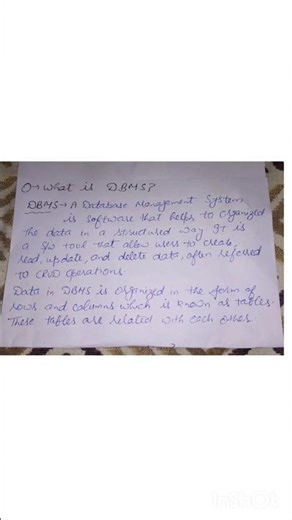 Q→ What is DBMS?
DBMS → A Database Management System
is software that helps to organized
the data in a structured way. It is
a S/w tool that allow users to create,
read, update, and delete data, often referred
to CRUD operations.
Data in DBMS is organized in the form of
rows and columns which is known as tables.
These tables are related with each other.
InShot